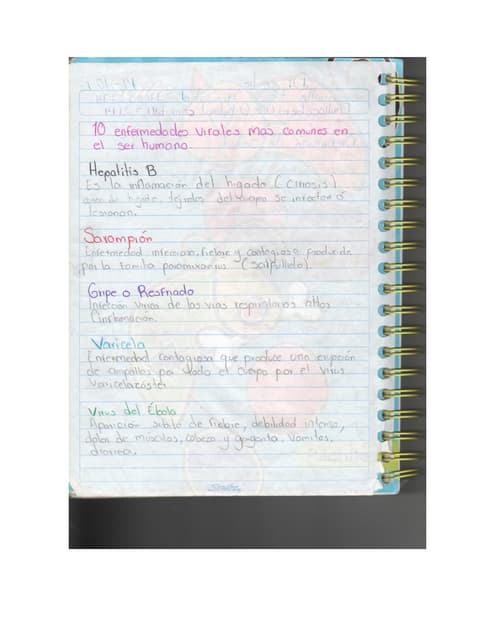 10 enfermedades virales mas comunes en
el ser humano.
Hepatitis B
Es la inflamación del higado (Cirrosis)
de higado, tejidos del cuerpo se infectan ó
lesionan.
Sarampión
Enfermedad infecciosa, fiebre y contagiosa producida
por la familia paramixovirus (Salpullido).
Gripe o Resfriado
Infección Virica de las vias respiratorias altas
(inflamación.
Varicela
Enfermedad contagiosa que produce una erupción
de ampollas por todo el cuerpo por el virus
Varicelazóster
Virus del Ébola
Aparición súbita de fiebre, debilidad intensa,
dolor de músculos, cabeza y garganta, Vomitos,
diarrea.